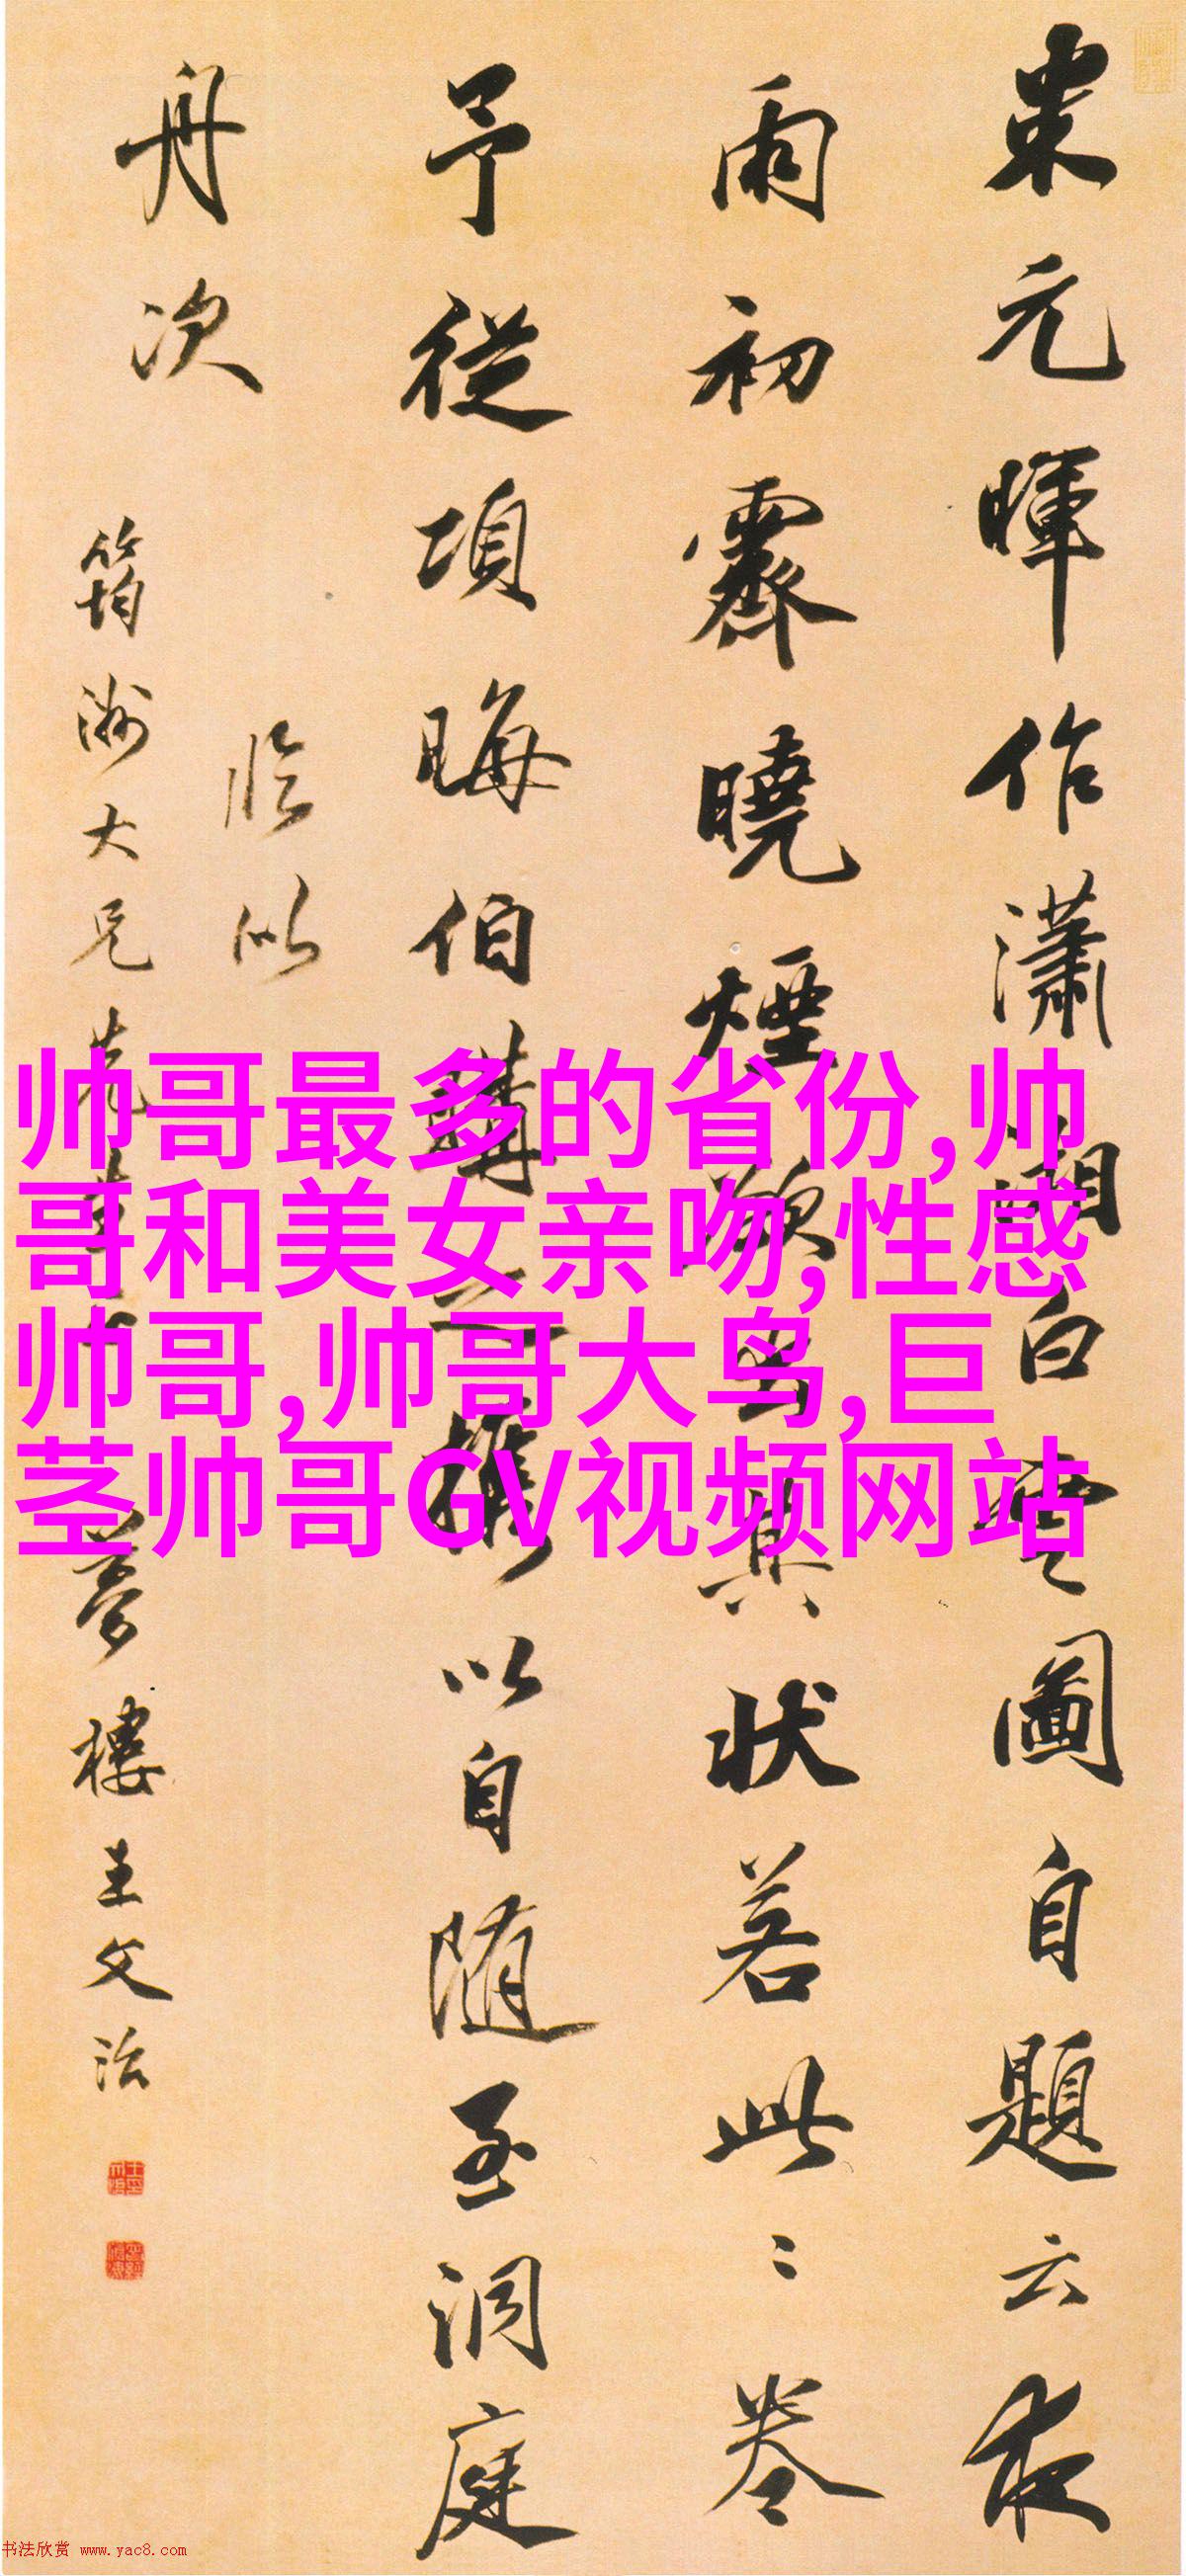 米元暉作瀟湘白雲圖自題云夜
雨初霽曉煙欲出其狀若此此卷
予從項晦伯購之攜以自随至洞庭
舟次
臨似
筠洲大兄先生
夢樓王文治
帅哥最多的省份,帅
哥和美女亲吻,性感
帅哥,帅哥大鸟,巨
茎帅哥GV视频网站
书法欣赏 www.yac8.com